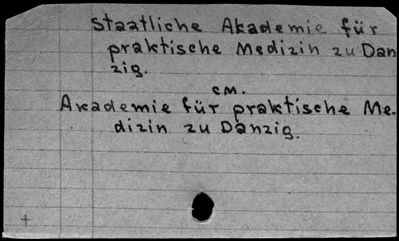 Staatliche Akademie für
praktische Medizin zu Dan
zig.
см.
Akademie für praktische Me-
dizin zu Danzig.
+